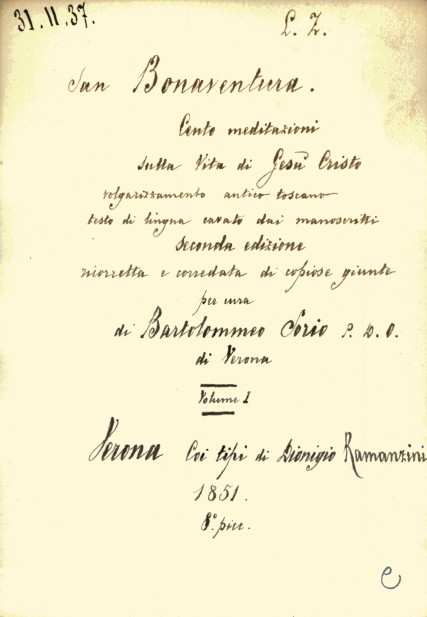 31.11.37.
L. Z.
San Bonaventura.
Cento meditazioni
sulla Vita di Gesù Cristo
volgarizzamento antico toscano
testo di lingua cavato dai manoscritti
seconda edizione
ricorretta e corredata di copiose giunte
per cura
di Bartolommeo Sorio P. D. O.
di Verona
Volume I
Verona Coi tipi di Dionigio Ramanzini
1851.
8° picc.
C